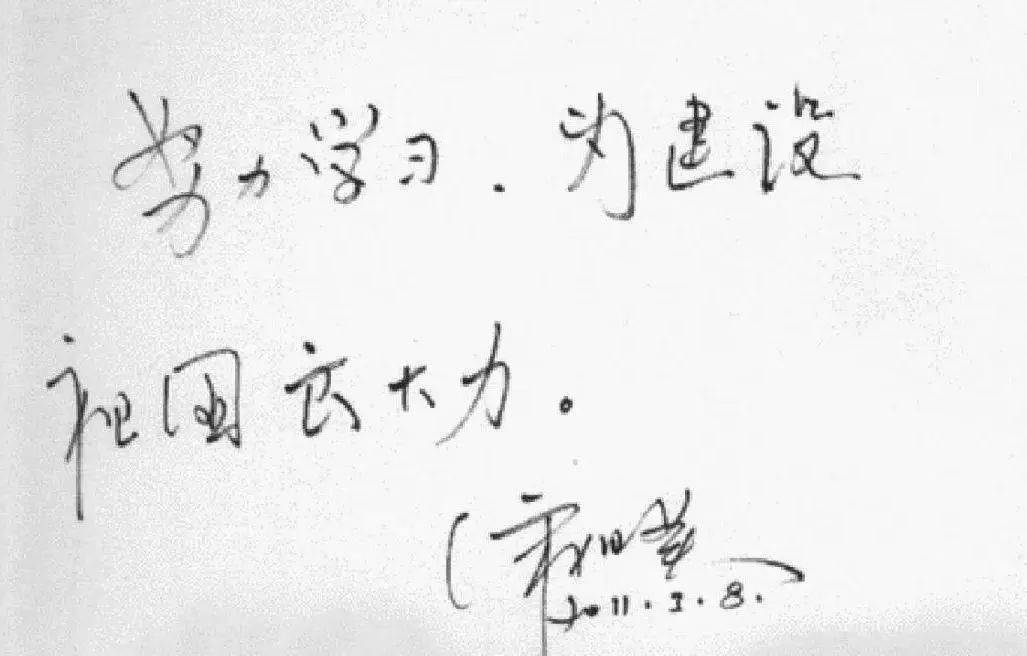 努力学习.为建设
祖国大力。
2011.3.8.